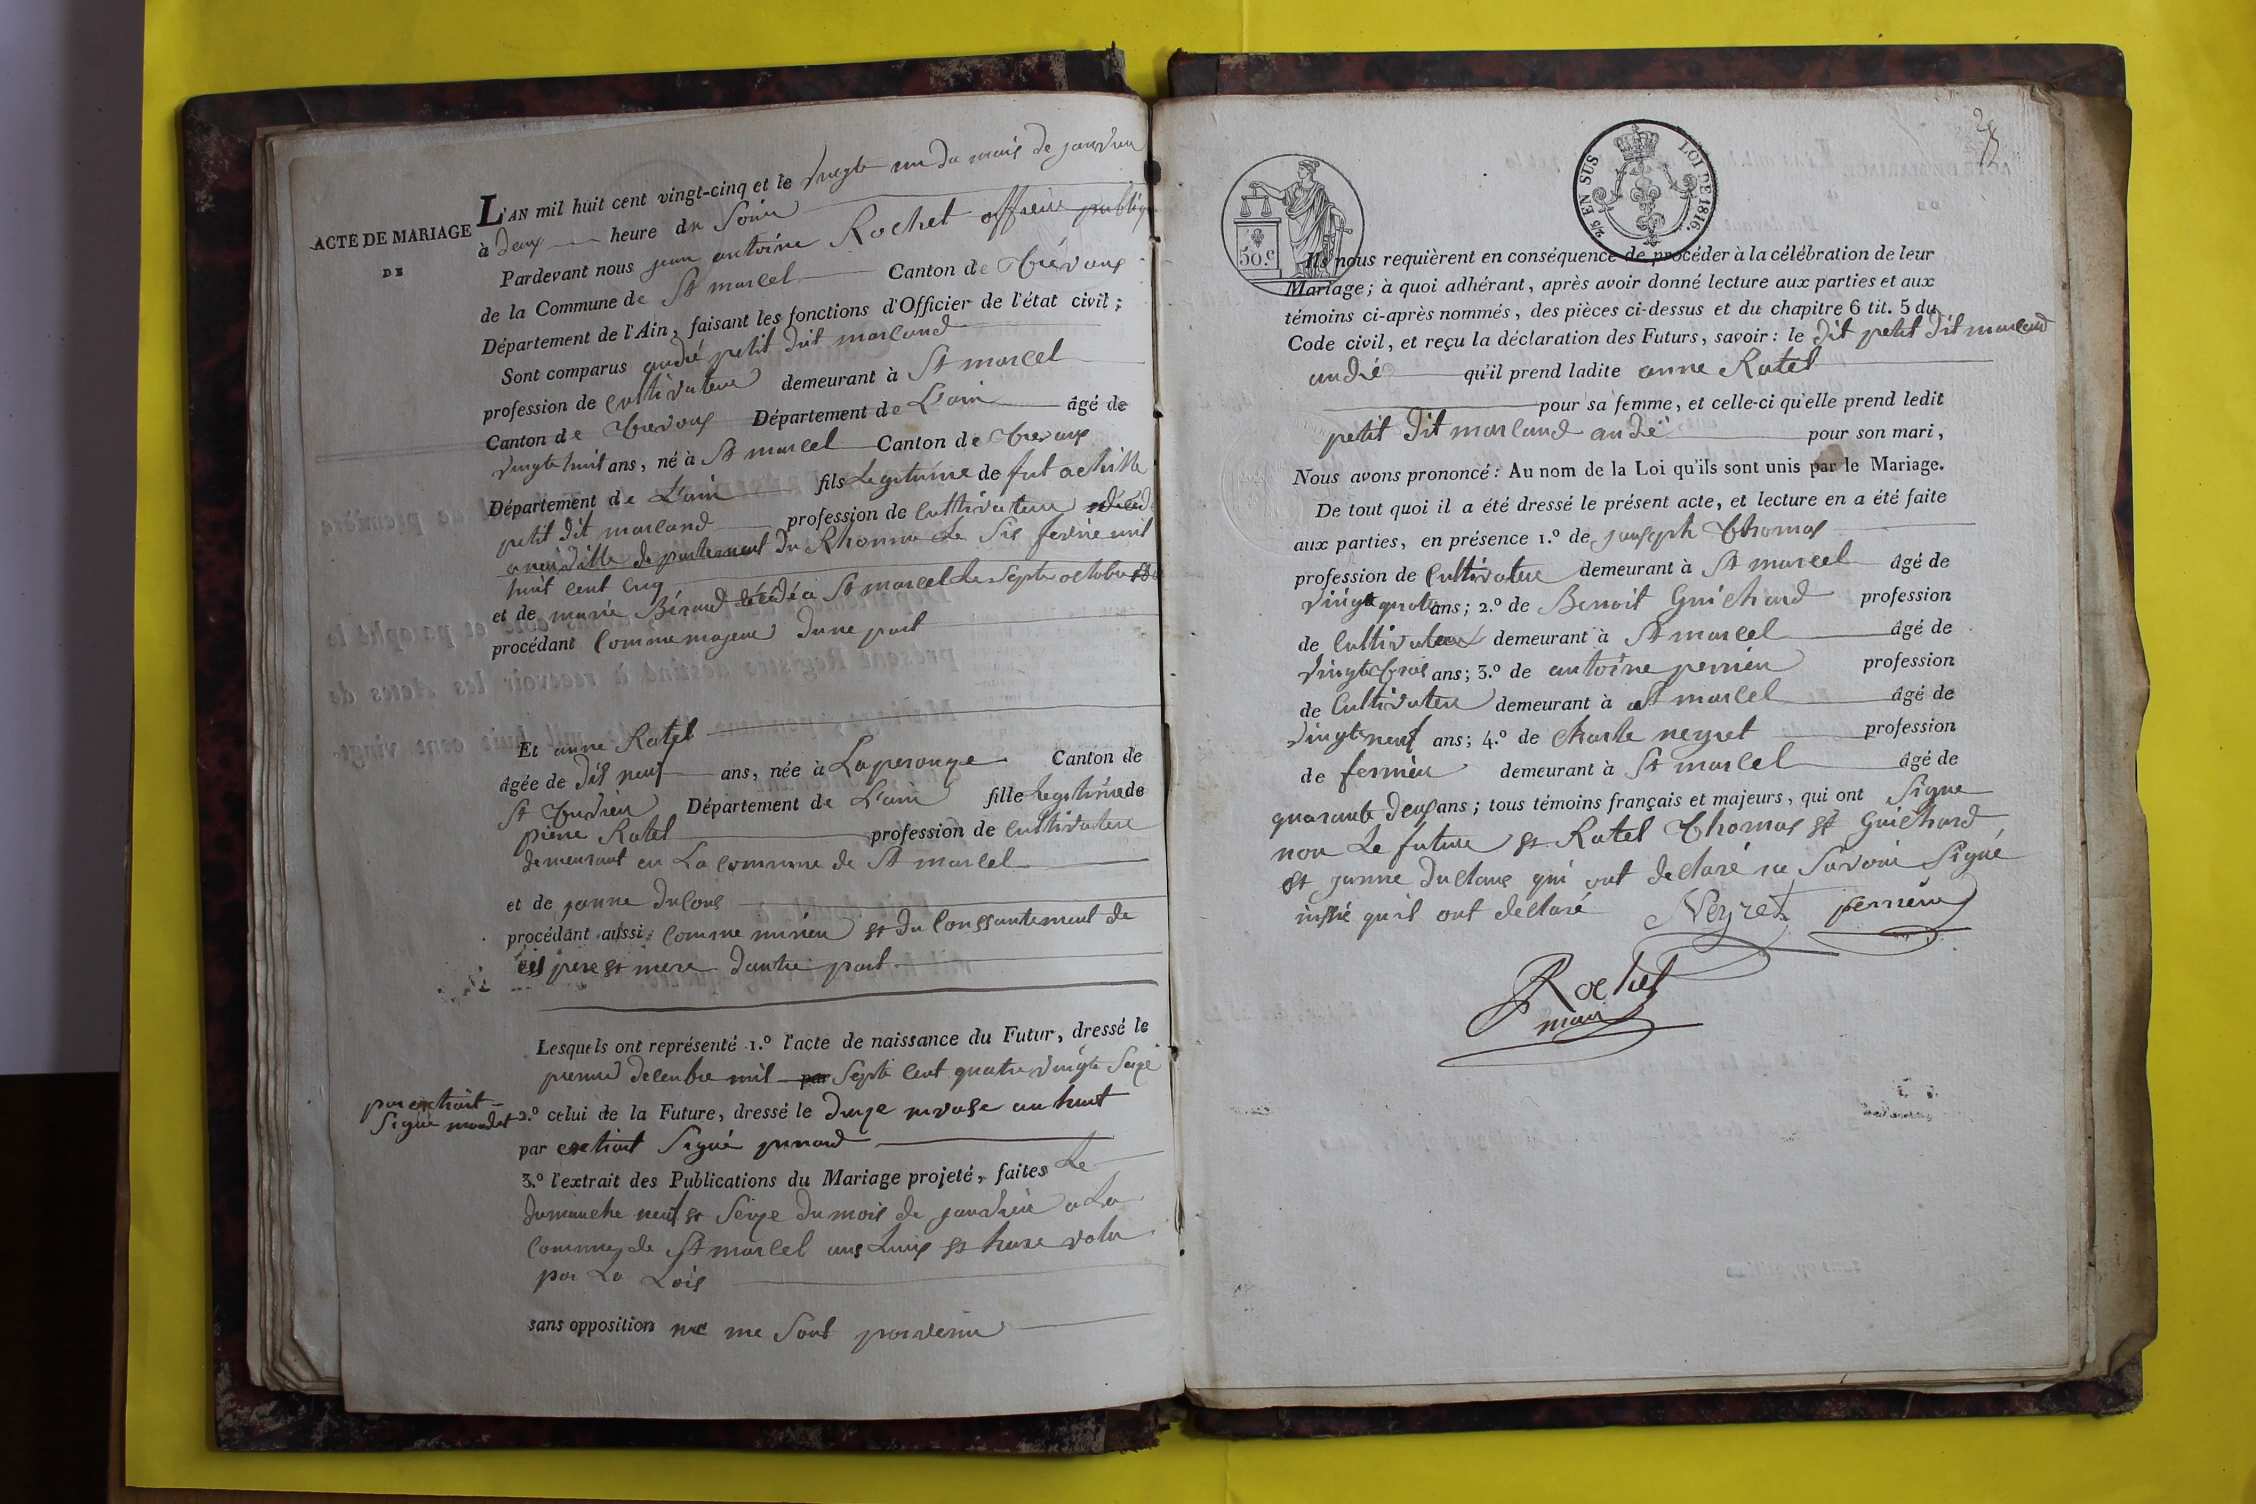 ACTE DE MARIAGE
DE
L'AN mil huit cent vingt-cinq et le vingte un du mois de janvier
à deux heure du Soire
Pardevant nous jean antoine Rochet officier publique
de la Commune de St marcel Canton de Trévoux
Département de l'Ain, faisant les fonctions d'Officier de l'état civil;
Sont comparus andré petit dit marland
profession de cultivateur demeurant à St marcel
Canton de Trevoux Département de L'ain âgé de
vingte huit ans, né à St marcel Canton de Trevoux
Département de L'ain fils Legitime de fut
petit dit marland profession de cultivateur
departement du Rhonne Le Sis mil
huit cent cinq
et de marie Béraud décédé a St marcel Le Septe octobre
procédant comme majeur dune part
Et anne Ratel
âgée de dis neuf ans, née à Laperouge Canton de
St Trivier Département de L'ain fille Legitime de
pierre Ratel profession de cultivateur
demeurant en La commune de St marcel
et de janne
procédant aussi comme minieu et du conssantement de
pere et mere dautre part
Lesquels ont représenté 1.º l'acte de naissance du Futur, dressé le
premier decenbre mil par Septe cent quatre vingte Seize
par extrait
Signé
2.º celui de la Future, dressé le douze an huit
par extrait Signé
3.º l'extrait des Publications du Mariage projeté, faites Le
dumanche neuf et Seize du mois de janvier a La
commune de St marcel aus Lieux et hure volu
par La Lois
sans opposition ne me Sont parvenu
50.c
2/5 EN SUS LOI DE 1816.
Ils nous requièrent en conséquence de procéder à la célébration de leur
Mariage; à quoi adhérant, après avoir donné lecture aux parties et aux
témoins ci-après nommés, des pièces ci-dessus et du chapitre 6 tit. 5 du
Code civil, et reçu la déclaration des Futurs, savoir: le dit petit dit marland
andré qu'il prend ladite anne Ratel
pour sa femme, et celle-ci qu'elle prend ledit
petit dit marland andré pour son mari,
Nous avons prononcé: Au nom de la Loi qu'ils sont unis par le Mariage.
De tout quoi il a été dressé le présent acte, et lecture en a été faite
aux parties, en présence 1.º de jauseph Thomas
profession de cultivateur demeurant à St marcel âgé de
vingt quatre ans; 2.º de Benoit Guichard profession
de cultivateur demeurant à St marcel âgé de
vingte trois ans; 3.º de antoine perrier profession
de cultivateur demeurant à St marcel âgé de
vingte neuf ans; 4.º de charle neyret profession
de fermier demeurant à St marcel âgé de
quarante deux ans; tous témoins français et majeurs, qui ont Signe
non Le future et Ratel Thomas et Guichard
et janne qui ont declaré ne Savoir Signé
quil ont declaré Neyret perrier
Rochet
maire